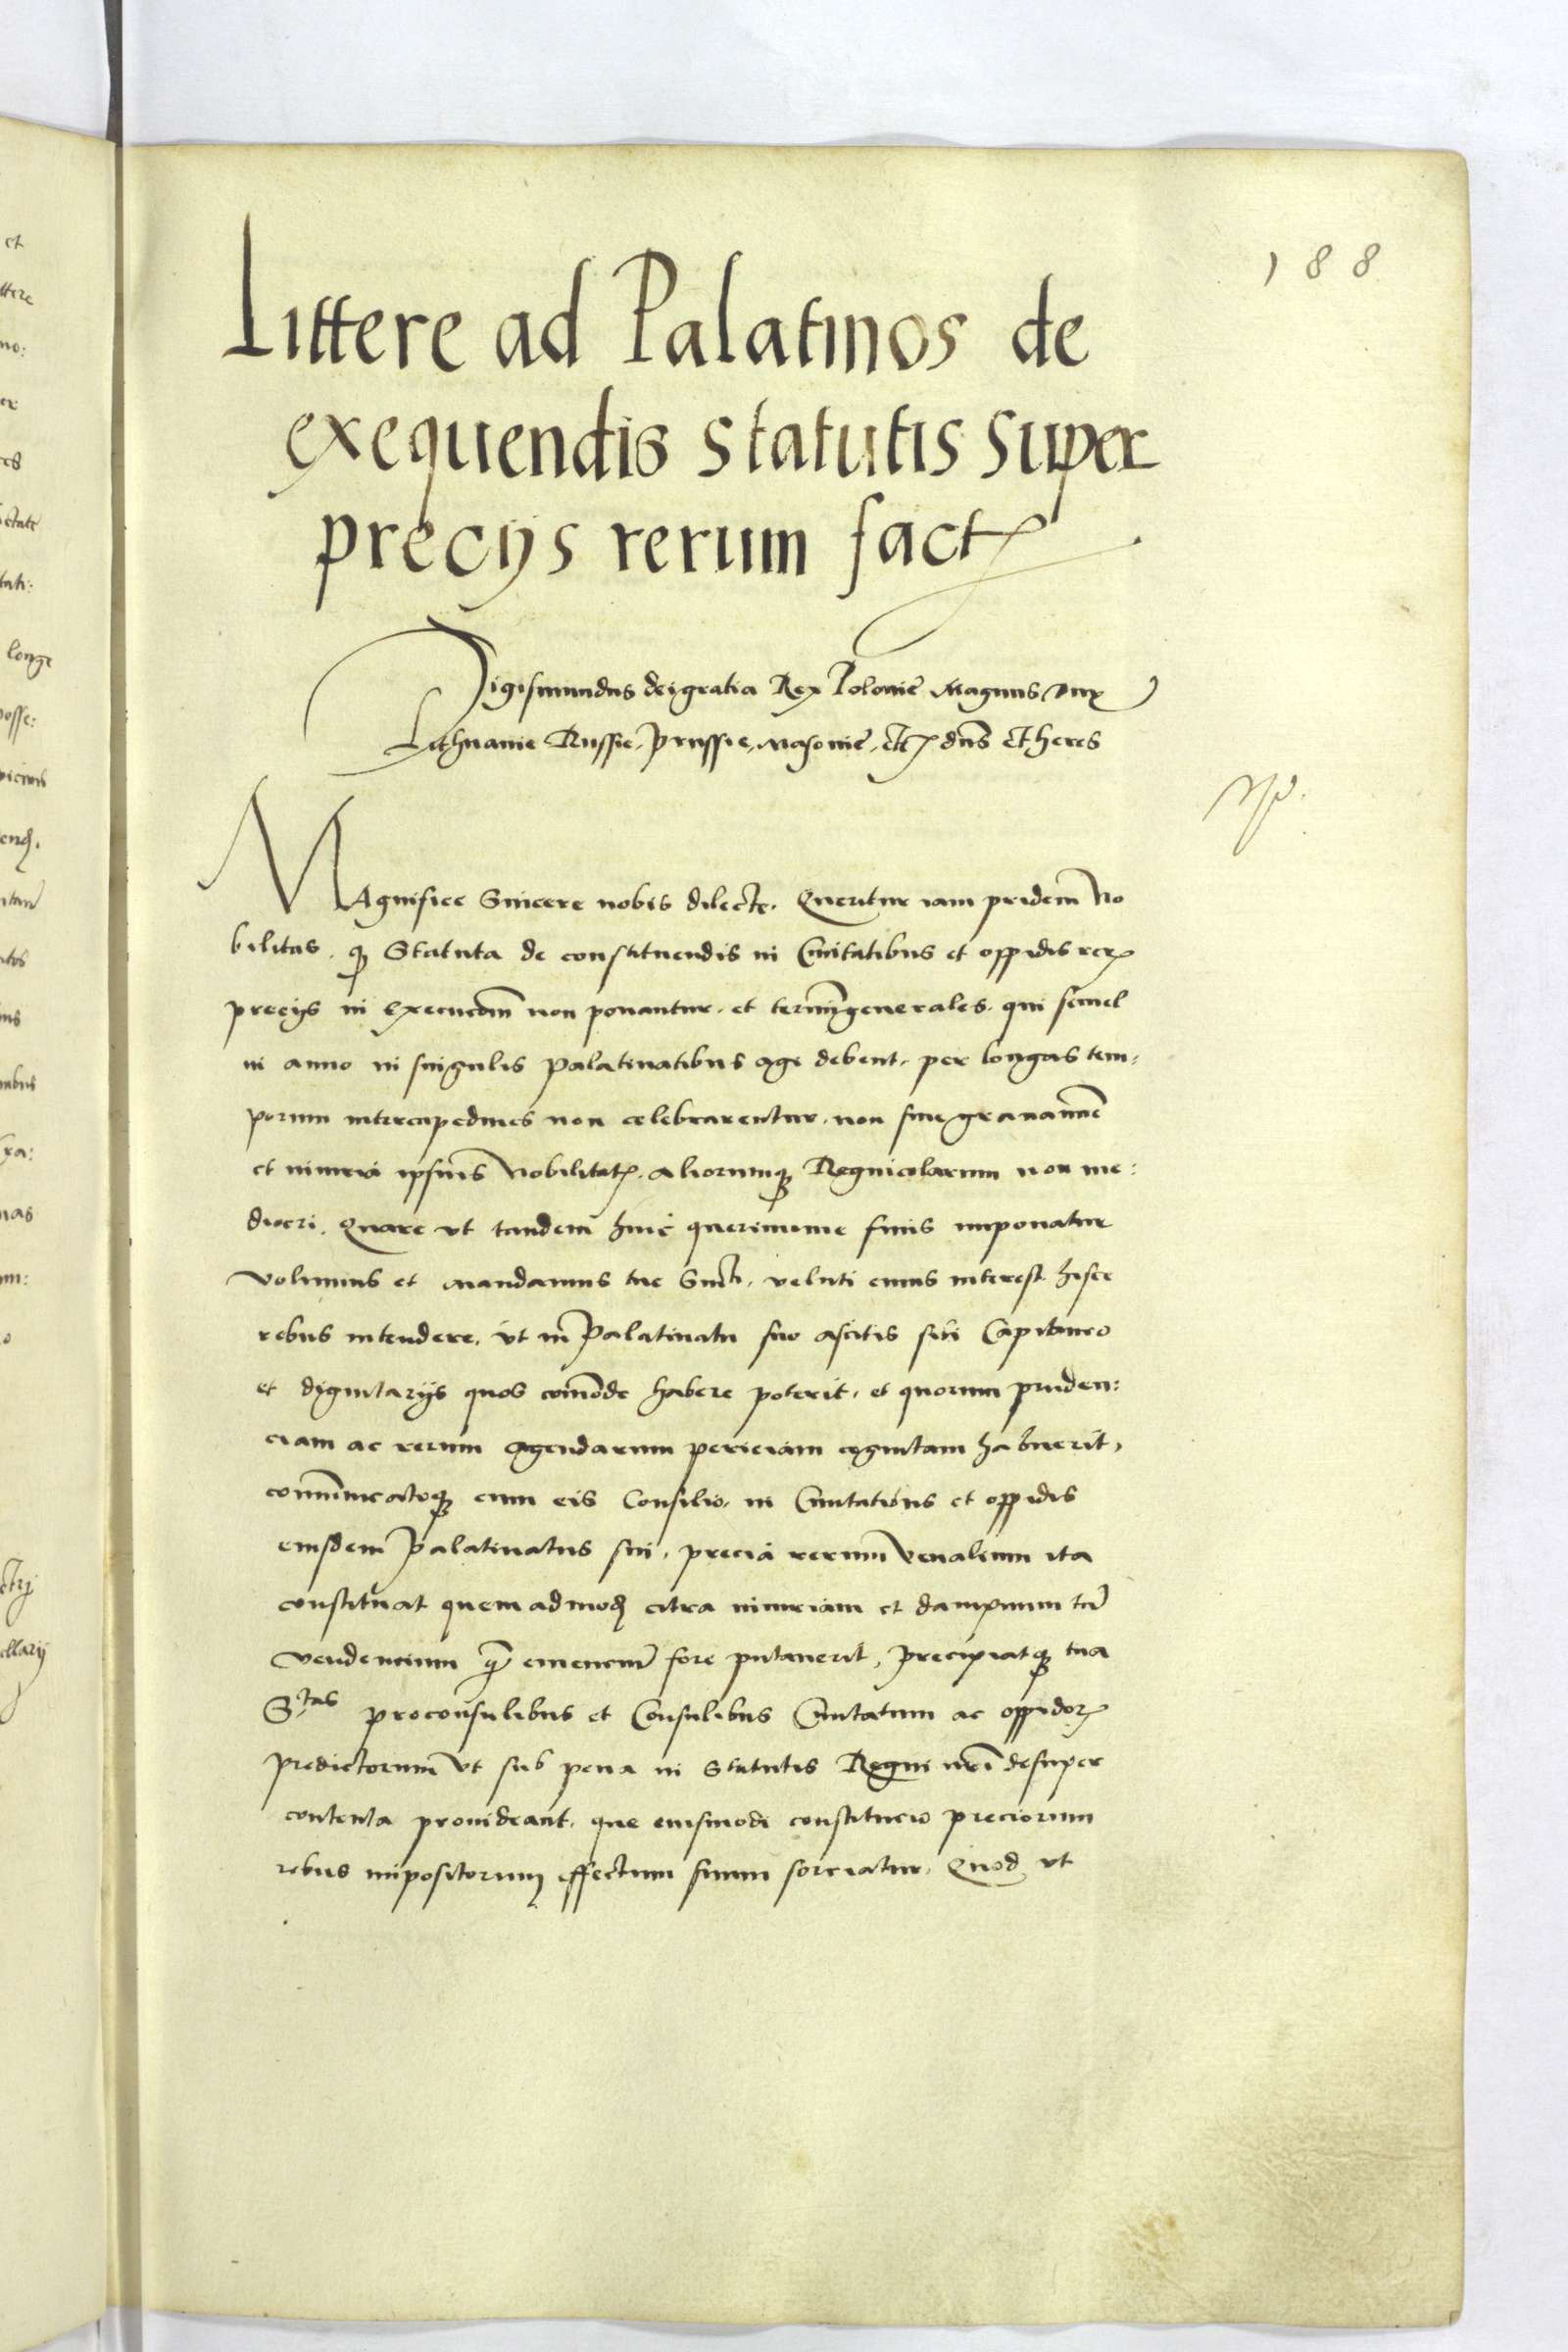 188
Littere ad Palatinos de
exequendis statutis super
precijs rerum fact
Sigismundus dei gratia Rex Polonie Magnus Dux
Lithuanie Russie, Prussie, Masovie, etc dns et heres
MAgnifice Sincere nobis dilecte. Queritur iam pridem No
bilitas. quod Statuta de constituendis in Civitatibus et oppidis rerum
precijs in Execucōm non ponantur. et termi generales. qui semel
in anno in singulis palatinatibus agi debent. per longas tem,
porum intercapedines non celebrarentur. non sine gravamine
et iniuria ipsius Nobilitatis. aliorumque Regnicolarum non me:
diocri. Quare ut tandem huic querimonie finis imponatur
Volumus et mandamus tue Sincti. veluti cuius interest hisce
rebus intendere. ut in Palatinatu suo ascitis sibi Capitaneo
et dignitarijs quos comode habere poterit. et quorum pruden:
ciam ac rerum agendarum periciam cognitam habuerit,
communicatoque cum eis Consilio. in Civitatibus et oppidis
eiusdem Palatinatus sui. precia rerum venalium ita
constituat quemadmod citra iniuriam et dampnum tam
vendencium quam emencium fore putaverit, precipiatque tua
Stas proconsulibus et Consulibus Civitatum ac oppidorum
predictorum ut sub pena in Statutis Regni nri desuper
contenta provideant. que eiusmodi constitucio preciorum
rebus impositorum effectum suum sorciatur. Quod ut
et
ttere
no:
er
res
tati:
longe
posse:
end.
itos
mbus
xa:
nas
llarij